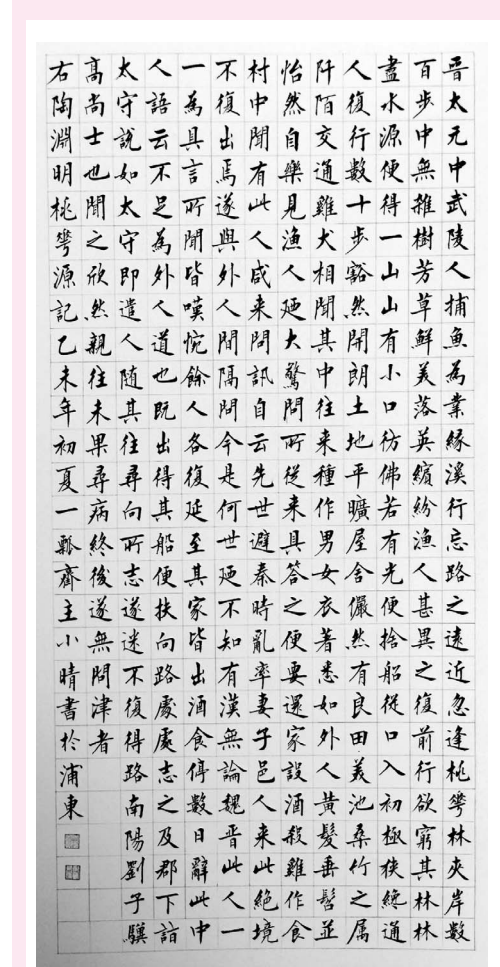 晉太元中武陵人捕魚為業緣溪行忘路之遠近忽逢桃華林夾岸數
百步中無雜樹芳草鮮美落英繽紛漁人甚異之復前行欲窮其林林
盡水源便得一山山有小口彷佛若有光便捨船從口入初極狹終通
人復行數十步豁然開朗土地平曠屋舍儼然有良田美池桑竹之属
阡陌交通雞犬相聞其中往来種作男女衣著悉如外人黃髮垂髫並
怡然自樂見漁人廼大驚問所從来具答之便要還家設酒殺雞作食
村中聞有此人咸来問訊自云先世避秦時亂率妻子邑人来此絕境
不復出焉遂與外人間隔問今是何世廼不知有漢無論魏晉此人一
一為具言所聞皆嘆惋餘人各復延至其家皆出酒食停數日辭此中
人語云不足為外人道也既出得其船便扶向路處處志之及郡下詣
太守說如太守即遣人随其往尋向所志遂迷不復得路南陽劉子驥
高尚士也聞之欣然親往未果尋病終後遂無問津者
右陶淵明桃華源記乙未年初夏一瓢齋主小晴書於浦東